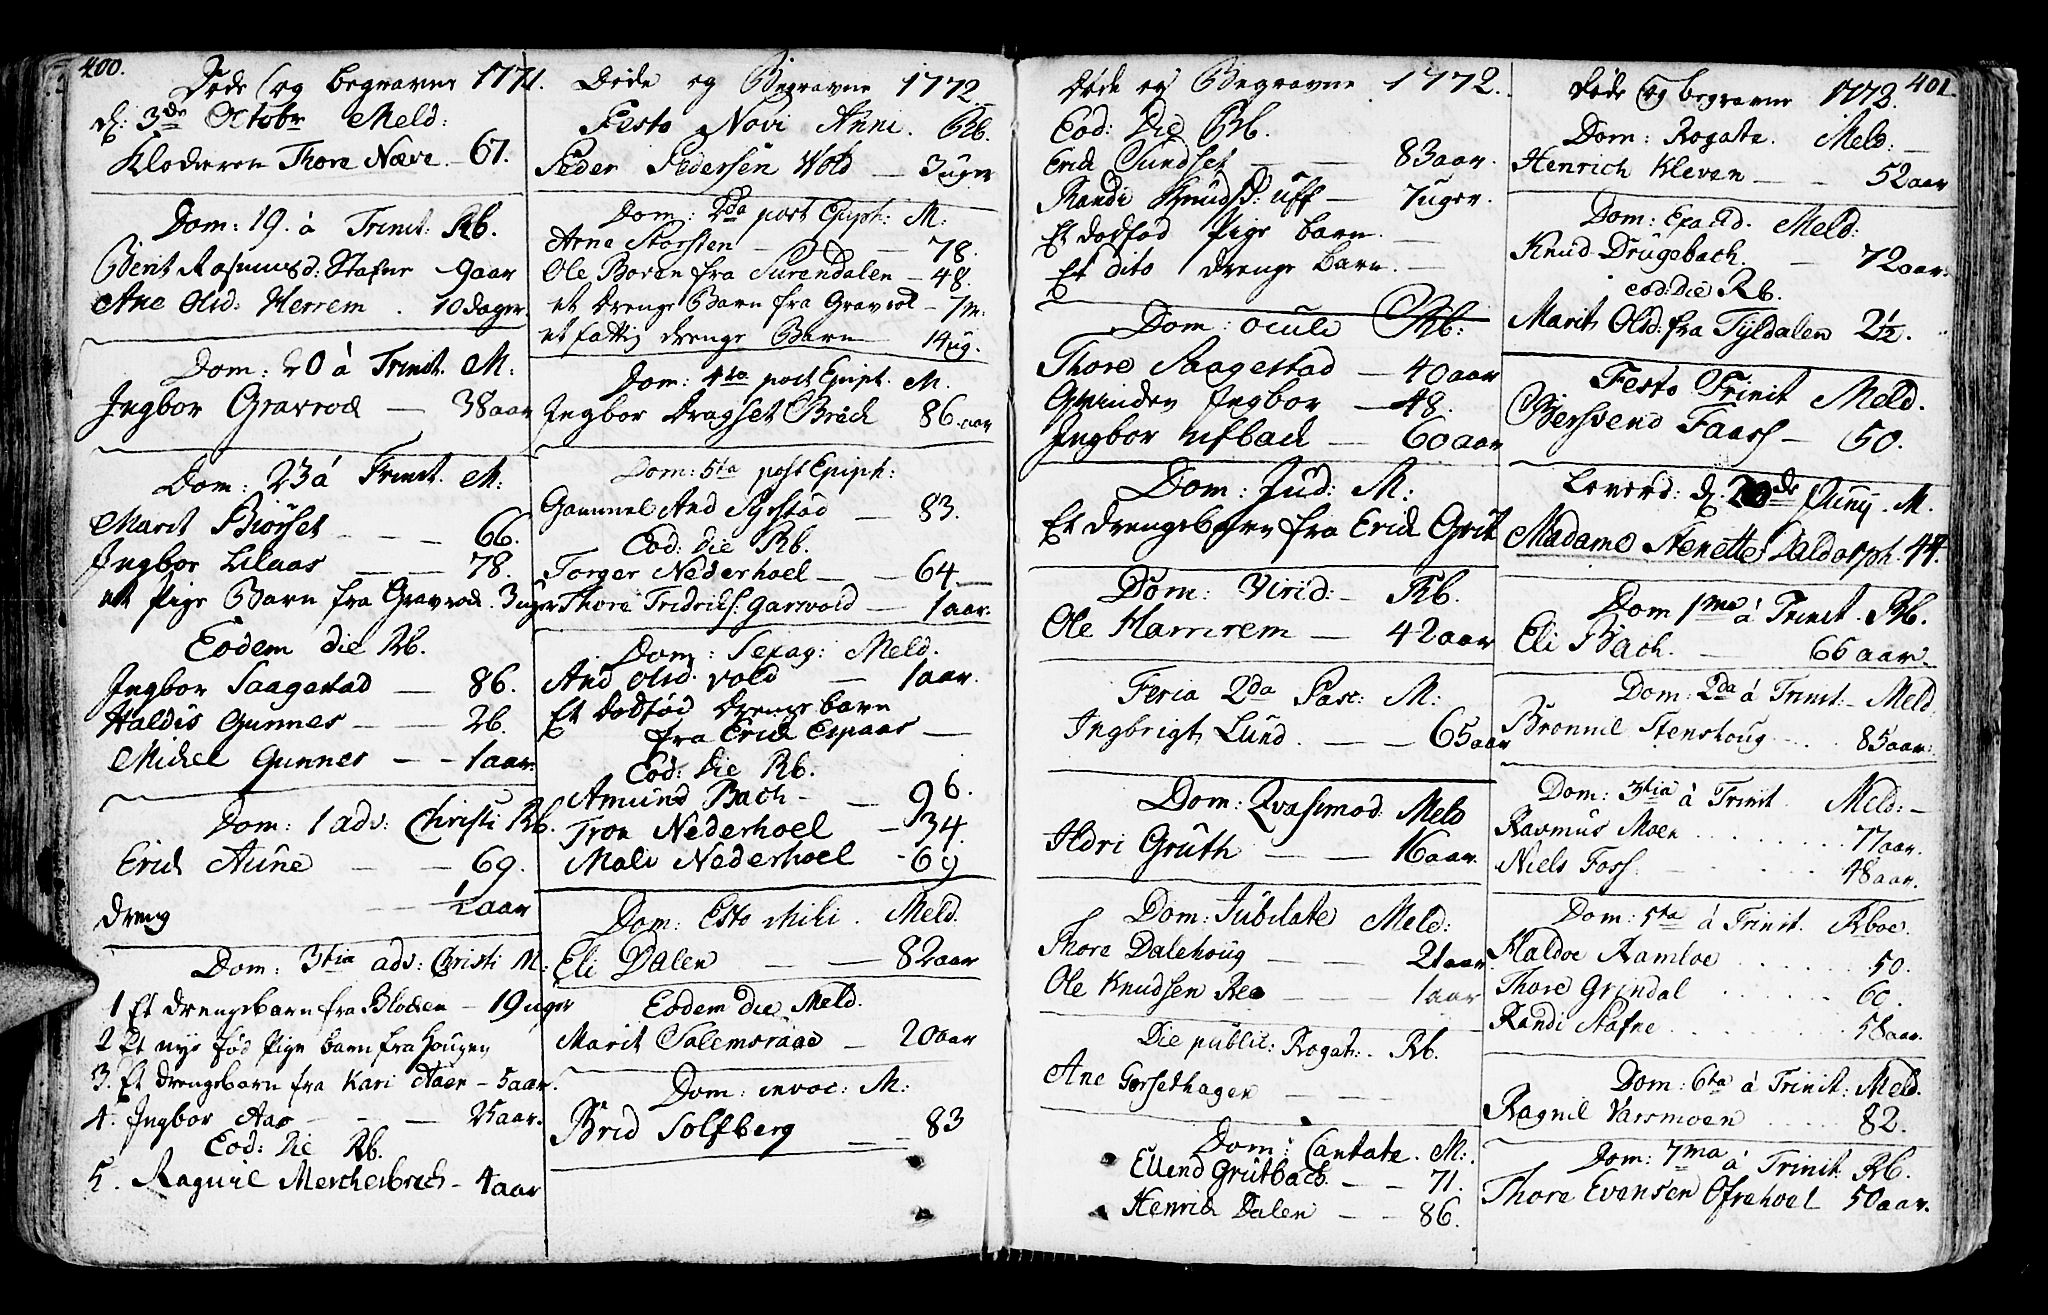 400.
Døde og begravne 1771.
d: 3de Octobr Meld:
Klokeren Thore Næve - 67.
Dom: 19. á Trinit: Rb.
Berit Rasmusd: Stafne - 9 aar
Ane Olsd: Herrem . 10 dager
Dom: 20 á Trinit. M:
Ingbor Gravrod — 38 aar
Dom: 23 á Trinit. M:
Marit Biørset - - - 66.
Ingbor Lilaas — — 78.
et Pige Barn fra Gravrod. 3 uger
Eodem die Rb.
Ingbor Saagestad — 86.
Haldis Gunnes — — 26.
Michel Gunnes - - 1 aar:
Dom: 1 adv: Christi Rb.
Erich Aune — — 69.
dreng — — ½ aar
Dom: 3tia adv: Christi M:
1 Et drengebarn fra Bloken - 19 uger
2 Et nys fød Pige barn fra Hougen
3. Et drengebarn fra Kari Aaen - 5 aar.
4. Ingbor Aas — — 25 aar.
Eod: die Rb.
5. Ragnil Merchesbech - 4 aar
Døde og Begravne 1772.
Festo Novi Anni. Rb.
Peder Pedersen Wold — 3 uger
Dom: 2da post Epiph: M:
Arne Storsten — — 78.
Ole Boren fra Surendalen - 48.
et drenge Barn fra Gravrod - 7 m:
et fattig drenge Barn — 14 ug.
Dom: 4ta post Epiph. M.
Ingbor Dragset Bræch 86. aar
Dom: 5ta post Epiph:
Gammel And Syrstad — 83.
Eod: die Rb.
Torger Nederhoel — — 64 —
Thore Fridrichs: Garwold — 1 aar.
Dom: Sexag: Meld.
And Olsd. vold — 1 aar.
Et dødfød drenge barn
fra Erich Espaas —
Eod: die Rb.
Amund Bach - — 96.
Tron Nederhoel — 34.
Mali Nederhoel - 69
Dom: Esto Mihi. Meld.
Eli Dalen — — 82 aar
Eodem die Meld.
Marit Salemsraae — 20 aar
Dom: invoc: M:
Brid Solfberg — — 83
Døde og Begravne 1772.
Eod: Die Rb.
Erich Sundset — — 83 aar.
Randi Knudsd: Uff — 7 uger.
Et dødfød Pige barn. —
Et dito drenge barn. —
Dom: oculi Rb:
Thore Saagestad — 40 aar
Qvinden Ingbor — 48.
Ingbor ufbach — 60 aar
Dom: Jud: M:
Et drengebarn fra Erich Grüt
Dom: Virid: - Rb.
Ole Hamrem — 42 aar
Feria 2da Pasc: M:
Ingbrigt Lund. — — 65 aar
Dom: Qvasimod: Meld
Ildri Grüth — — 16 aar.
Dom: Jubilate Meld:
Thore Dalehoug — — 21 aar
Ole Knudsen Ree — — 1 aar
Die public: Rogat: - Rb.
Ane Gorsethagen — —
Dom: Cantate. M:
Ellend Grütbach — — 71.
Henrich Dalen — — 86.
Døde og begravne 1772. 401
Dom: Rogate. Meld: —
Henrich Kleven — — 52 aar
Dom: Exaud. Meld:
Knud Drugebach. — 72 aar.
eod: die Rb.
Marit Olsd: fra Tyldalen 2½.
Festo Trinit Meld.
Bersvend Faass — 50.
Leverd: d. 20de Junij. M.
Madame Nenette Daldorph. 44.
Dom 1ma á Trinit. Rb.
Eli Bach. — 66 aar.
Dom: 2da á Trinit: - Meld.
Bronnil Stenshoug . . . . 85 aar:
Dom: 3tia á Trinit. Meld: -
Rasmus Moen . . . . . . 77 aar.
Niels Foss. — . . . . 48 aar.
Dom: 5ta á Trinit. Rboe.
Haldoe Ramloe . . . . . . 50.
Thore Grindal . . . . . 60.
Randi Stafne . . . . . . 58 aar.
Dom: 6ta á Trinit: Meld.
Ragnil Varsmoen . . . . . 82.
Dom: 7ma á Trinit. Rb.
Thore Evensen Ofrehoel 50 aar.